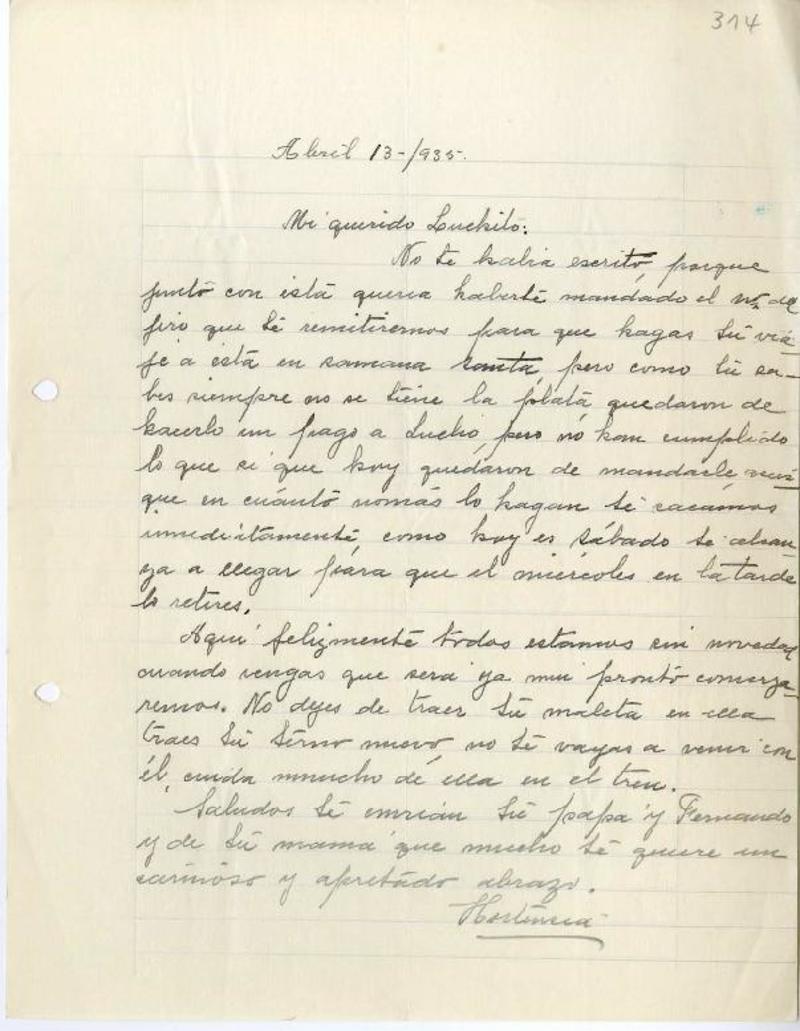 314
Abril 13-/935.
Mi querido Luchito:
No te habia escrito, porque
junto con ésta queria haberte mandado el No. del
jiro que té remitiremos para que hagas tú via-
je a ésta en samana santa, pero como tú sa-
bes siempre no se tiene la plata, quedaron de
hacerlo un pago a Lucho, pero no han cumplido
lo que si que hoy quedaron de mandarle, asi
que en cuánto nomás lo hagan té sacamos
inmediatamente, como hoy es sábado te alcan
za a llegar para que el miércoles en la tarde
lo retires.
Aquí felizmente todos estamos sin novedad
cuando vengas que será ya mui pronto conversa-
remos. No dejes de traer tú maleta en ella
traes tú terno nuevo, no té vayas a venir con
él, cuida mucho de ella en el tren.
Saludos té envian tú papá y Fernando
y de tú mamá que mucho té quiere un
cariñoso y apretado abrazo.
Hortensia